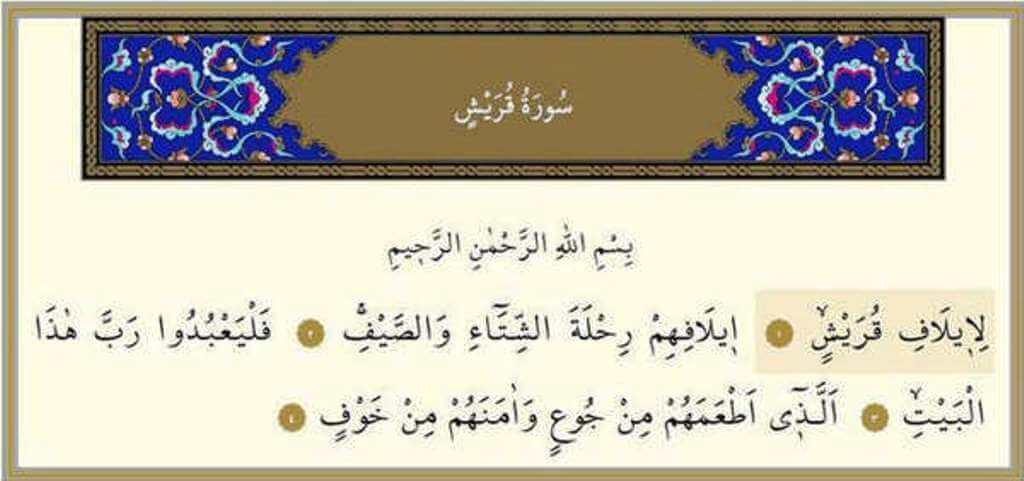 سُورَةُ قُرَيْشٍ
بِسْمِ اللّٰهِ الرَّحْمٰنِ الرَّح۪يمِ
لِا۪يلَافِ قُرَيْشٍۙ ﴿١﴾ ا۪يلَافِهِمْ رِحْلَةَ الشِّتَٓاءِ وَالصَّيْفِۚ ﴿٢﴾ فَلْيَعْبُدُوا رَبَّ هٰذَا
الْبَيْتِۙ ﴿٣﴾ اَلَّذ۪ٓي اَطْعَمَهُمْ مِنْ جُوعٍ وَاٰمَنَهُمْ مِنْ خَوْفٍ ﴿٤﴾